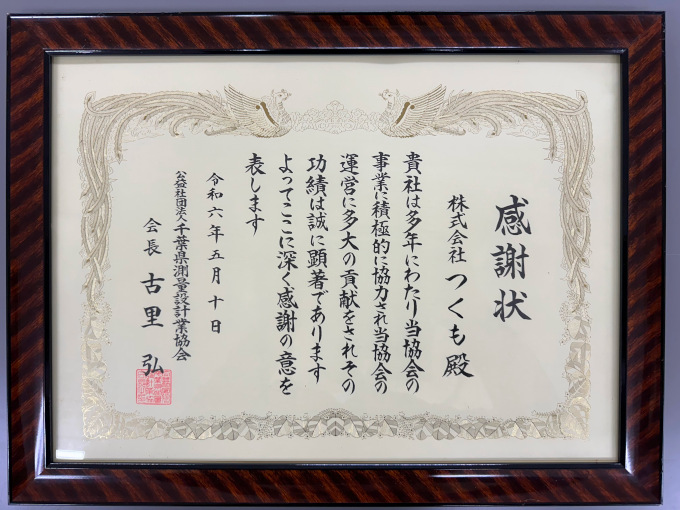 感謝状
株式会社 つくも殿
貴社は多年にわたり当協会の
事業に積極的に協力され当協会の
運営に多大の貢献をされその
功績は誠に顕著であります
よってここに深く感謝の意を
表します
令和六年五月十日
公益社団法人千葉県測量設計業協会
会長 古里 弘